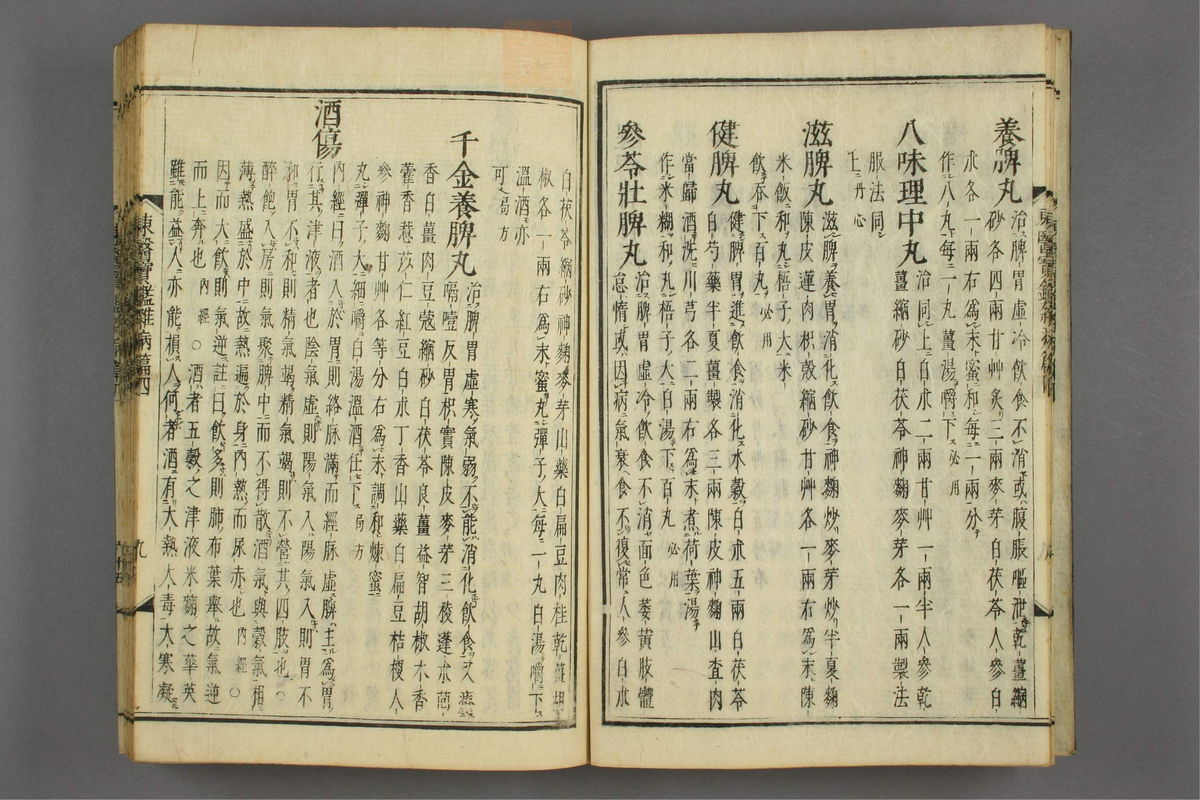 養脾丸治脾胃虛冷飲食不消或腹脹嘔泄乾薑縮
砂各四兩甘艸炙三兩麥芽白茯苓人參白
朮各一兩右爲末蜜和每一兩分
作八丸每一丸薑湯嚼下必用
八味理中丸治同上白朮二兩甘艸一兩半人參乾
薑縮砂白茯苓神麴麥芽各一兩製法
服法同
上丹心
滋脾丸滋脾養胃消化飲食神麴炒麥芽炒半夏麴
陳皮蓮肉枳殼縮砂甘艸各一兩右爲末陳
米飯和丸梧子大米
飲吞下百丸必用
健脾丸健脾胃進飲食消化水穀白朮五兩白茯苓
白芍藥半夏薑製各三兩陳皮神麴山査肉
當歸酒洗川芎各二兩右爲末煮荷葉湯
作米糊和丸梧子大白湯下百丸必用
參苓壯脾丸治脾胃虛冷飲食不消面色萎黃肢體
怠惰或因病氣衰食不復常人參白朮
白茯苓縮砂神麴麥芽山藥白扁豆肉桂乾薑胡
椒各一兩右爲末蜜丸彈子大每一丸白湯嚼下
溫酒亦
可局方
千金養脾丸治脾胃虛寒氣弱不能消化飲食又
嗝噎反胃枳實陳皮麥芽三稜蓬朮茴
香白薑肉豆蔻縮砂白茯苓良薑益智胡椒木香
藿香薏苡仁紅豆白朮丁香山藥白扁豆桔梗人
參神麴甘艸各等分右爲末調和煉蜜
丸彈子大細嚼白湯溫酒任下局方
酒傷
內經曰酒入於胃則絡脉滿而經脉虛脾主爲胃
行其津液者也陰氣虛則陽氣入陽氣入則胃不
和胃不和則精氣竭精氣竭則不營其四肢也○
醉飽入房則氣聚脾中而不得散酒氣與穀氣相
薄熱盛於中故熱遍於身內熱而尿赤也內經○
因而大飮則氣逆註曰飮多則肺布葉擧故氣逆
而上奔也內經○酒者五穀之津液米麴之華英
雖能益人亦能損人何者酒有大熱大毒大寒凝
東醫寶鑑雜病篇四
九